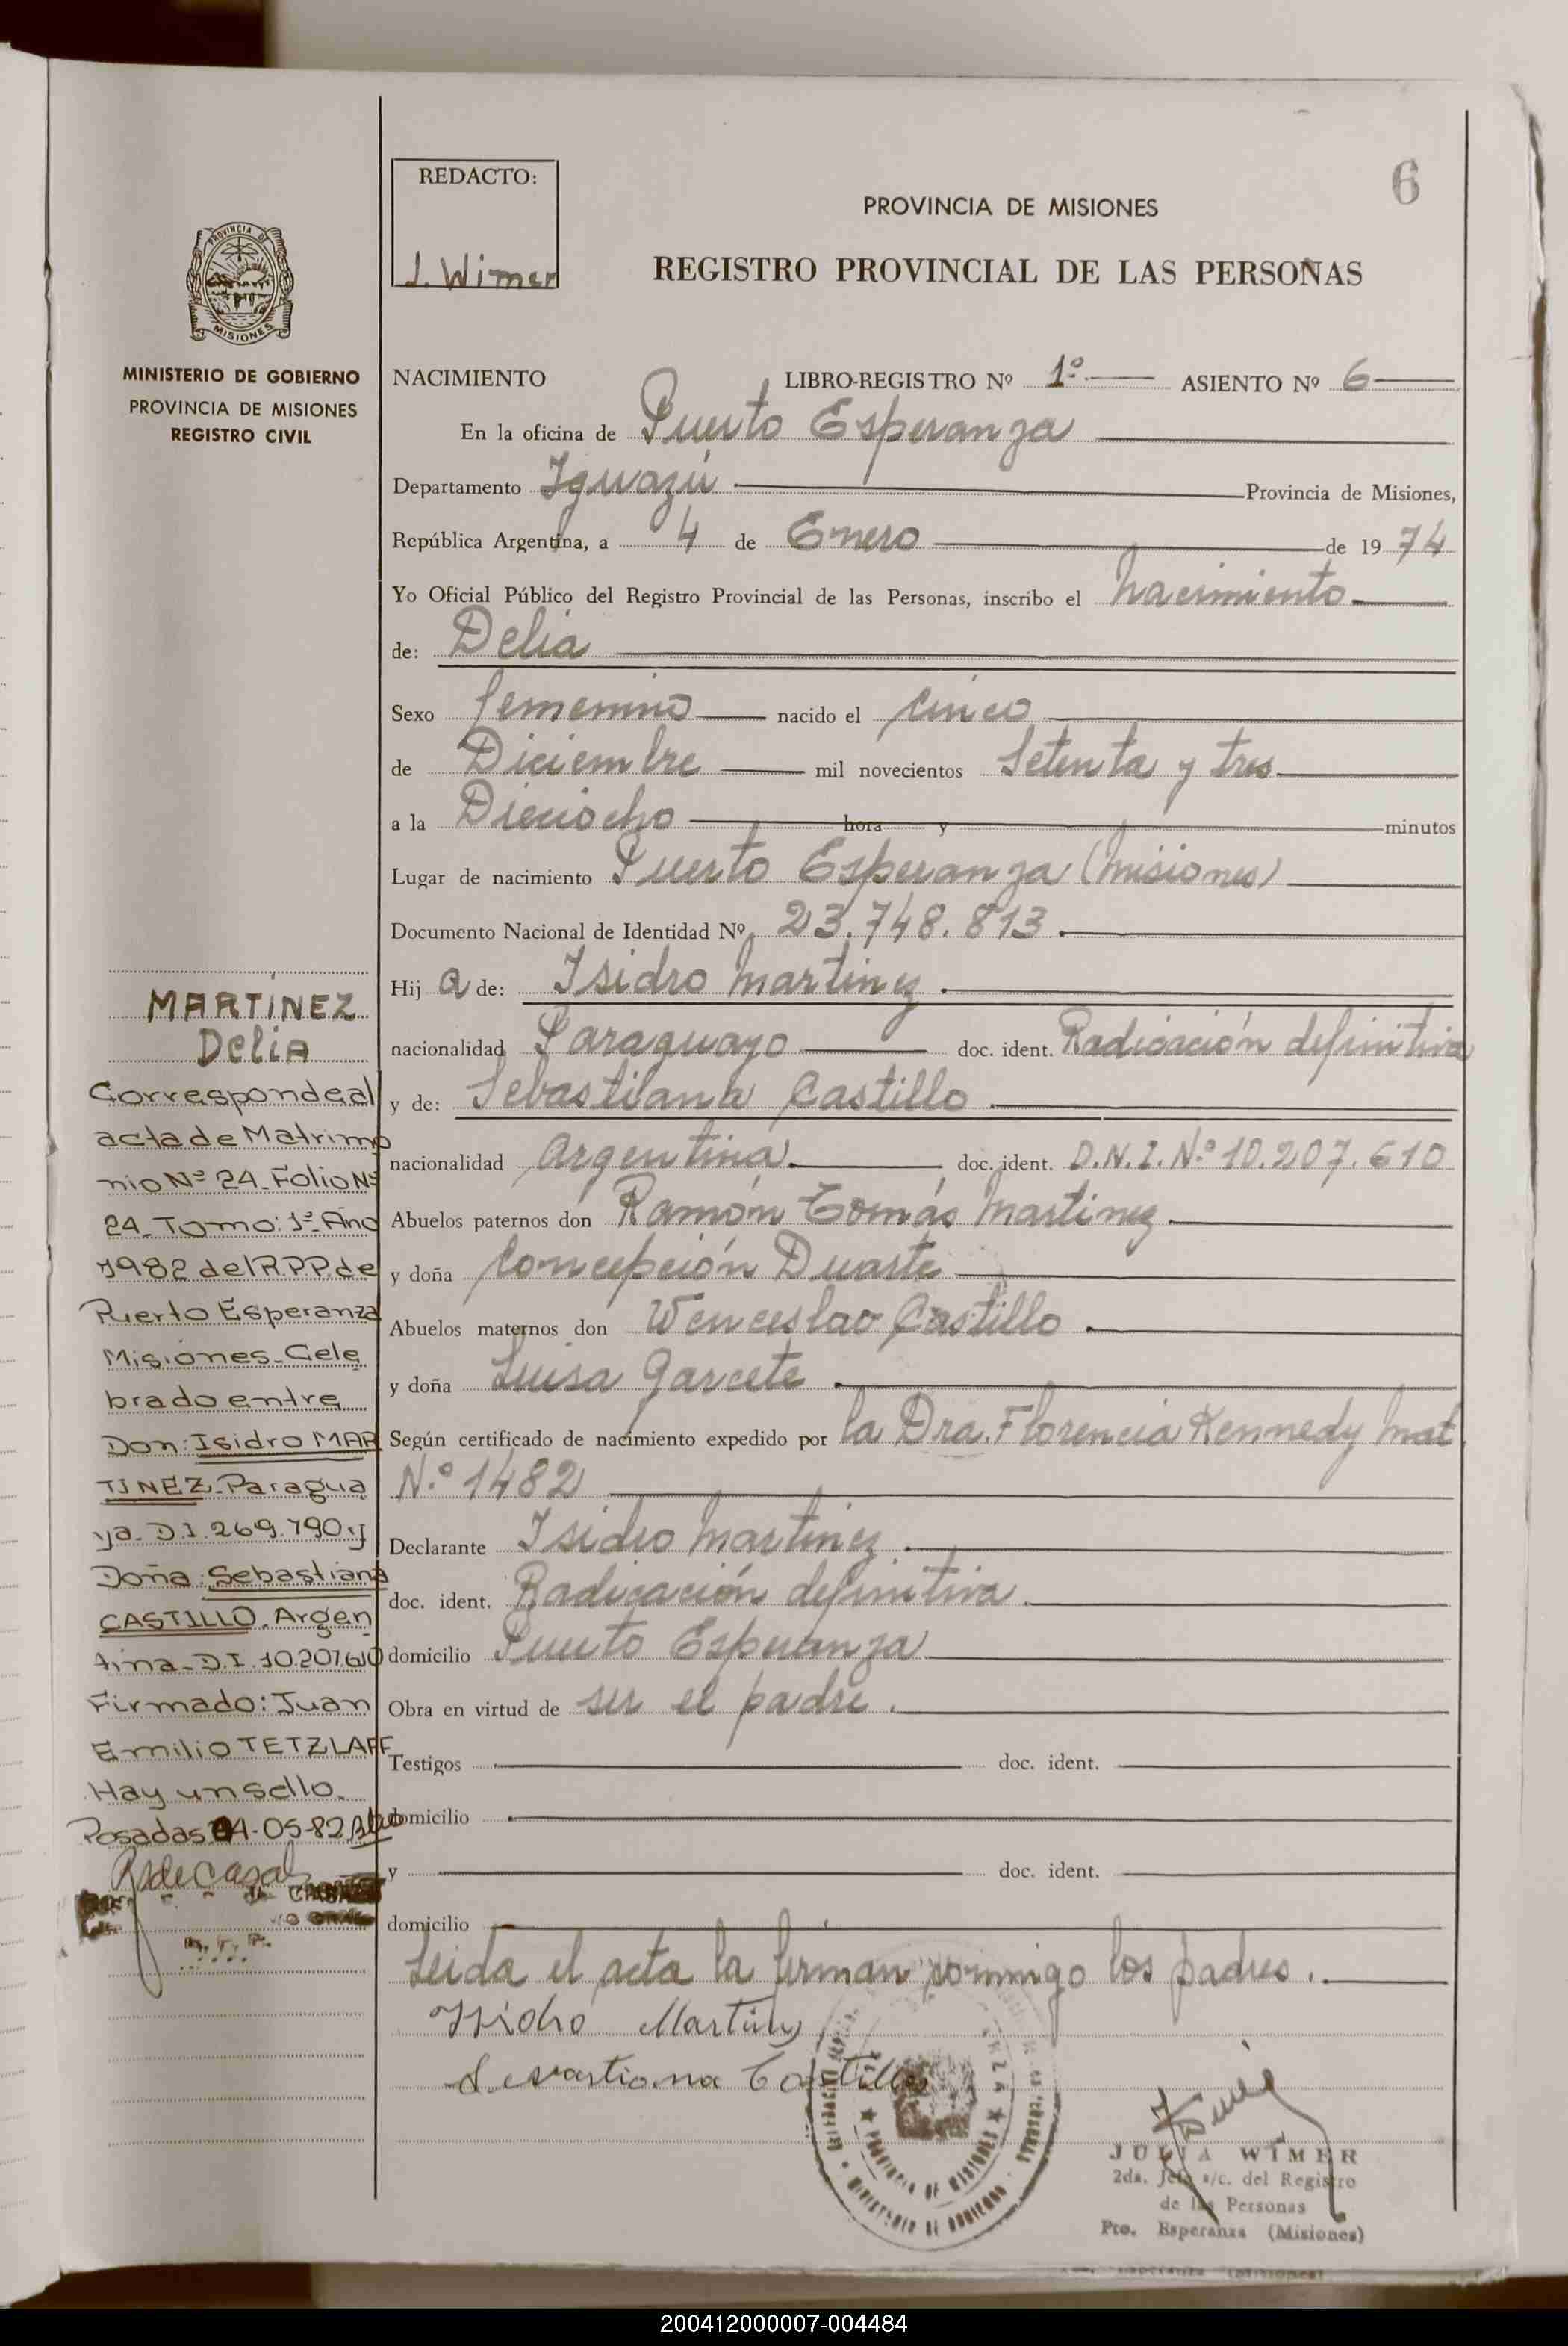 6
REDACTO:
J. Wimer
PROVINCIA DE MISIONES
REGISTRO PROVINCIAL DE LAS PERSONAS
PROVINCIA DE
MISIONES
MINISTERIO DE GOBIERNO
PROVINCIA DE MISIONES
REGISTRO CIVIL
NACIMIENTO LIBRO-REGISTRO Nº 1º ASIENTO Nº 6
En la oficina de Puerto Esperanza
Departamento Iguazú Provincia de Misiones,
República Argentina, a 4 de Enero de 19 74
Yo Oficial Público del Registro Provincial de las Personas, inscribo el nacimiento
de: Delia
Sexo femenino nacido el cinco
de Diciembre mil novecientos setenta y tres
a la Dieciocho hora y minutos
Lugar de nacimiento Puerto Esperanza (Misiones)
Documento Nacional de Identidad Nº 23.748.813.
Hij a de: Isidro Martinez.
nacionalidad Paraguayo doc. ident. Radicación definitiva
y de: Sebastiana Castillo
nacionalidad Argentina. doc. ident. D.N.I. N.º 10.207.610
Abuelos paternos don Ramón Tomás Martinez.
y doña Concepción Duarte
Abuelos maternos don Wenceslao Castillo.
y doña Luisa Garcete.
Según certificado de nacimiento expedido por la Dra. Florencia Kennedy Mat.
N.º 1482
Declarante Isidro Martinez.
doc. ident. Radicación definitiva.
domicilio Puerto Esperanza
Obra en virtud de ser el padre.
Testigos doc. ident.
domicilio
y doc. ident.
domicilio
Leida el acta la firman conmigo los padres.
Isidro Martinez
Sevastiana Castillo
MARTÍNEZ
Delia
Corresponde al
acta de Matrimo
nio Nº 24. Folio Nº
24. Tomo: 1º Año
1982 del R.P.P. de
Puerto Esperanza
Misiones. Cele
brado entre
Don: Isidro MAR
TINEZ. Paragua
ya. D.I. 269.790 y
Doña: Sebastiana
CASTILLO. Argen
tina. D.I. 10.207.610
Firmado: Juan
Emilio TETZLAFF
Hay un sello.
Posadas 04-05-82
PROVINCIA DE MISIONES
MINISTERIO DE GOBIERNO
JULIA WIMER
2da. Jefe a/c. del Registro
de las Personas
Pto. Esperanza (Misiones)
200412000007-004484